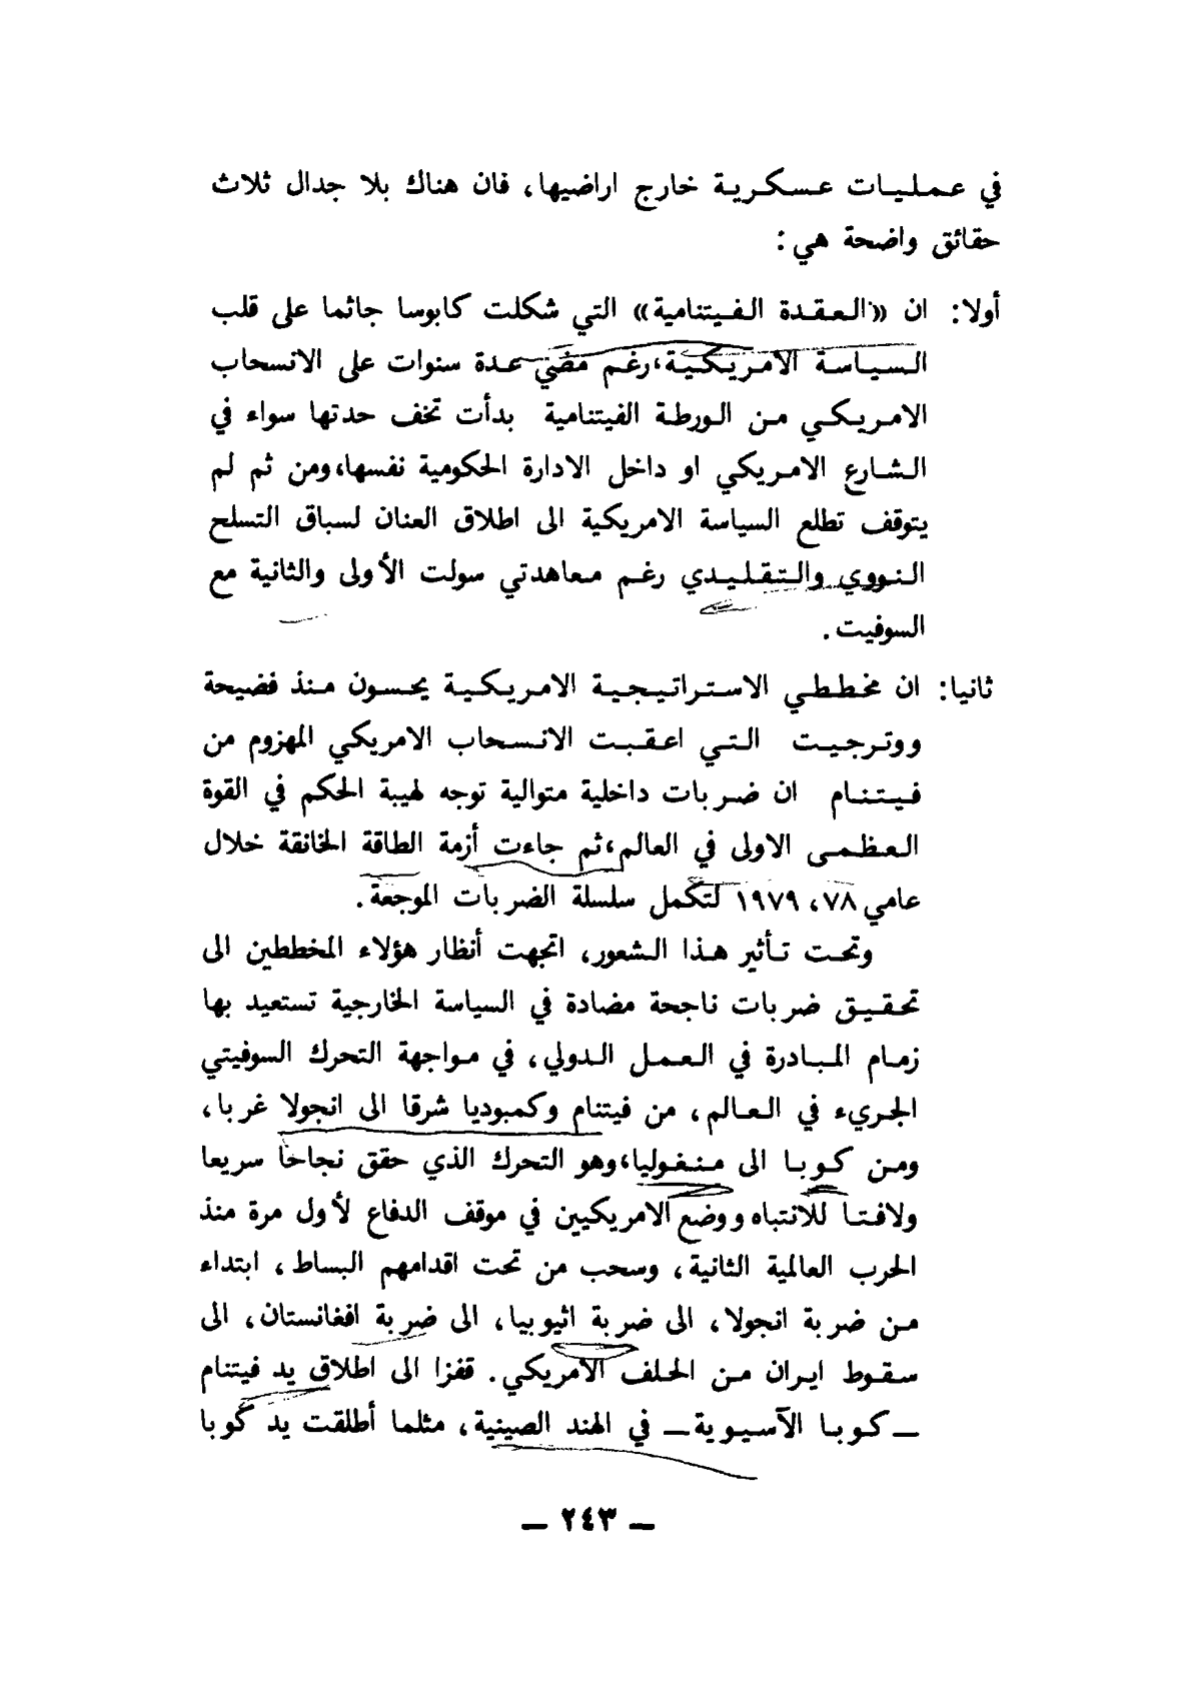 في عمليات عسكرية خارج اراضيها، فان هناك بلا جدال ثلاث
حقائق واضحة هي :
أولا: ان «العقدة الفيتنامية» التي شكلت كابوسا جاثما على قلب
السياسة الامريكية، رغم مضي عدة سنوات على الانسحاب
الامريكي من الورطة الفيتنامية بدأت تخف حدتها سواء في
الشارع الامريكي او داخل الادارة الحكومية نفسها، ومن ثم لم
يتوقف تطلع السياسة الامريكية الى اطلاق العنان لسباق التسلح
النووي والتقليدي رغم معاهدتي سولت الأولى والثانية مع
السوفيت .
ثانيا: ان مخططي الاستراتيجية الامريكية يحسون منذ فضيحة
ووترجيت التي اعقبت الانسحاب الامريكي المهزوم من
فيتنام ان ضربات داخلية متوالية توجه لهيبة الحكم في القوة
العظمى الاولى في العالم، ثم جاءت أزمة الطاقة الخانقة خلال
عامي ٧٨، ١٩٧٩ لتكمل سلسلة الضربات الموجعة .
وتحت تأثير هذا الشعور، اتجهت أنظار هؤلاء المخططين الى
تحقيق ضربات ناجحة مضادة في السياسة الخارجية تستعيد بها
زمام المبادرة في العمل الدولي، في مواجهة التحرك السوفيتي
الجريء في العالم، من فيتنام وكمبوديا شرقا الى انجولا غربا،
ومن كوبا الى منغوليا، وهو التحرك الذي حقق نجاحا سريعا
ولافتا للانتباه ووضع الامريكيين في موقف الدفاع لأول مرة منذ
الحرب العالمية الثانية، وسحب من تحت اقدامهم البساط، ابتداء
من ضربة انجولا، الى ضربة اثيوبيا، الى ضربة افغانستان، الى
سقوط ايران من الحلف الامريكي. قفزا الى اطلاق يد فيتنام
ــ كوبا الآسيوية ــ في الهند الصينية، مثلما أطلقت يد كوبا
ــ ٢٤٣ ــ